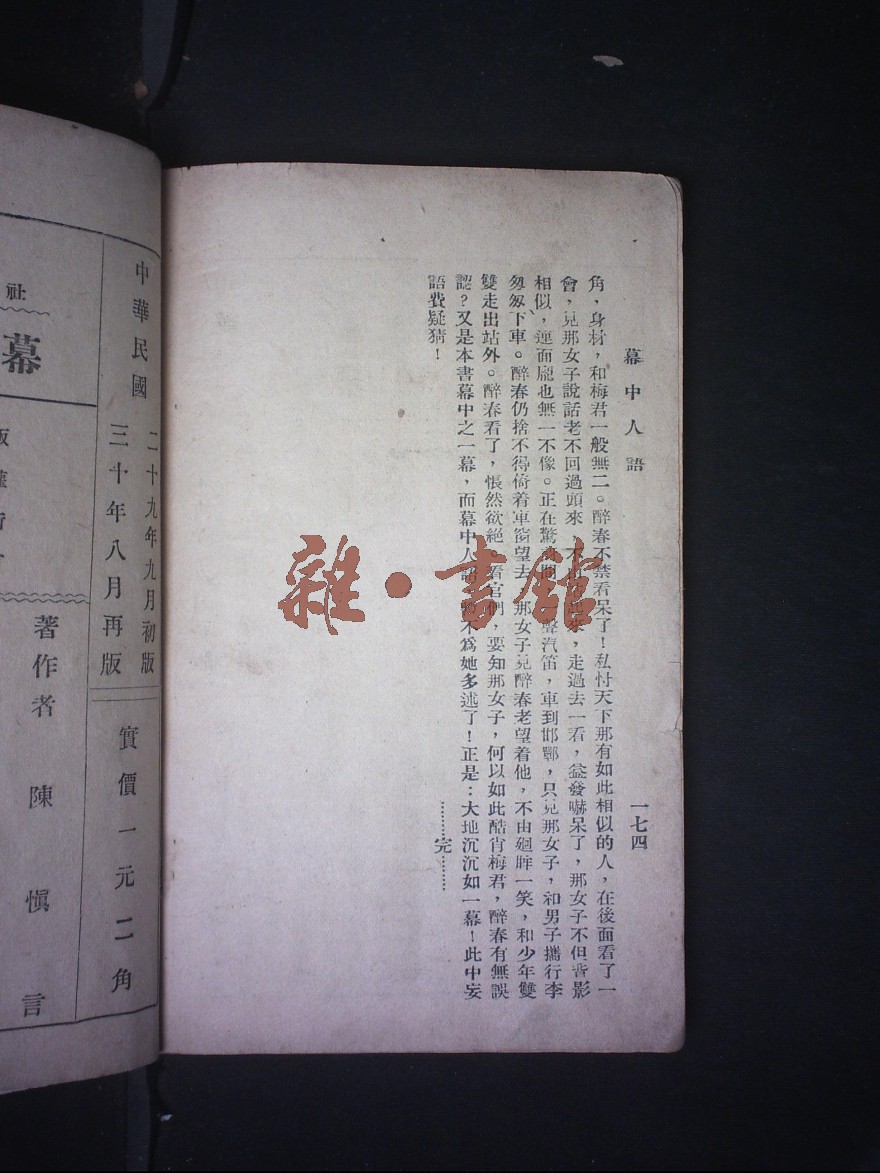 幕中人語
一七四
角，身材，和梅君一般無二。醉春不禁看呆了！私忖天下那有如此相似的人，在後面看了一
會，見那女子說話老不回過頭來，走過去一看，益發嚇呆了，那女子不但背影
相似，連面龐也無一不像。正在驚聲汽笛，車到邯鄲，只見那女子，和男子攜行李
匆匆下車。醉春仍捨不得倚着車窗望去，那女子見醉春老望着他，不由廻眸一笑，和少年雙
雙走出站外。醉春看了，悵然欲絕看官們，要知那女子，何以如此酷肖梅君，醉春有無誤
認？又是本書幕中之一幕，而幕中人語不爲她多述了！正是：大地沉沉如一幕！此中妄
語費疑猜！
…………完…………
雜·書館
中華民國
二十九年九月初版
三十年八月再版
實價一元二角
社
幕
著作者 陳慎言